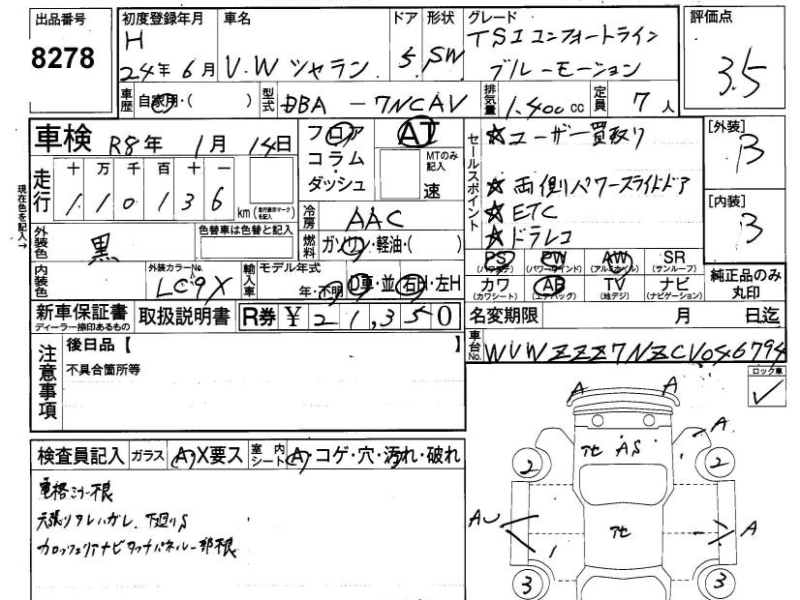 出品番号
8278
初度登録年月
H
24年 6月
車名
V.W シャラン
ドア
5
形状
SW
グレード
TSI コンフォートライン
ブルーモーション
評価点
3.5
車歴
自家用・( )
型式
DBA - 7NCAV
排気量
1.400 cc
定員
7 人
現在色を記入→
車検 R8年 1月 14日
走行
十 万 千 百 十 一
1 1 0 1 3 6
km
フロア
コラム
ダッシュ
AT
MTのみ記入
速
冷房
AAC
燃料
ガソリン・軽油・( )
外装色
黒
色替車は色替と記入
内装色
外装カラーNo.
LC9X
輸入車
モデル年式
年・不明
D車・並
右H・左H
セールスポイント
☆ユーザー買取り
☆両側パワースライドドア
☆ETC
☆ドラレコ
[外装]
B
[内装]
B
PS
(パワステ)
PW
(パワーウインド)
AW
(アルミホイル)
SR
(サンルーフ)
カワ
(カワシート)
AB
(エアバッグ)
TV
(地デジ)
ナビ
(ナビゲーション)
純正品のみ
丸印
新車保証書
ディーラー捺印あるもの
取扱説明書
R券 ¥ 21,350
名変期限 月 日迄
車台No.
WVWZZZ7NZCV046794
注意事項
後日品【 】
不具合箇所等
ロック車
✓
検査員記入
ガラス
A・X要ス
室内シート
A・コゲ・穴・汚れ・破れ
電格ミラー不良
天張りタレハガレ、下廻りS
カロッツェリアナビタッチパネル一部不良
A
A
A
AS
2
2
AU
A
1
3
3